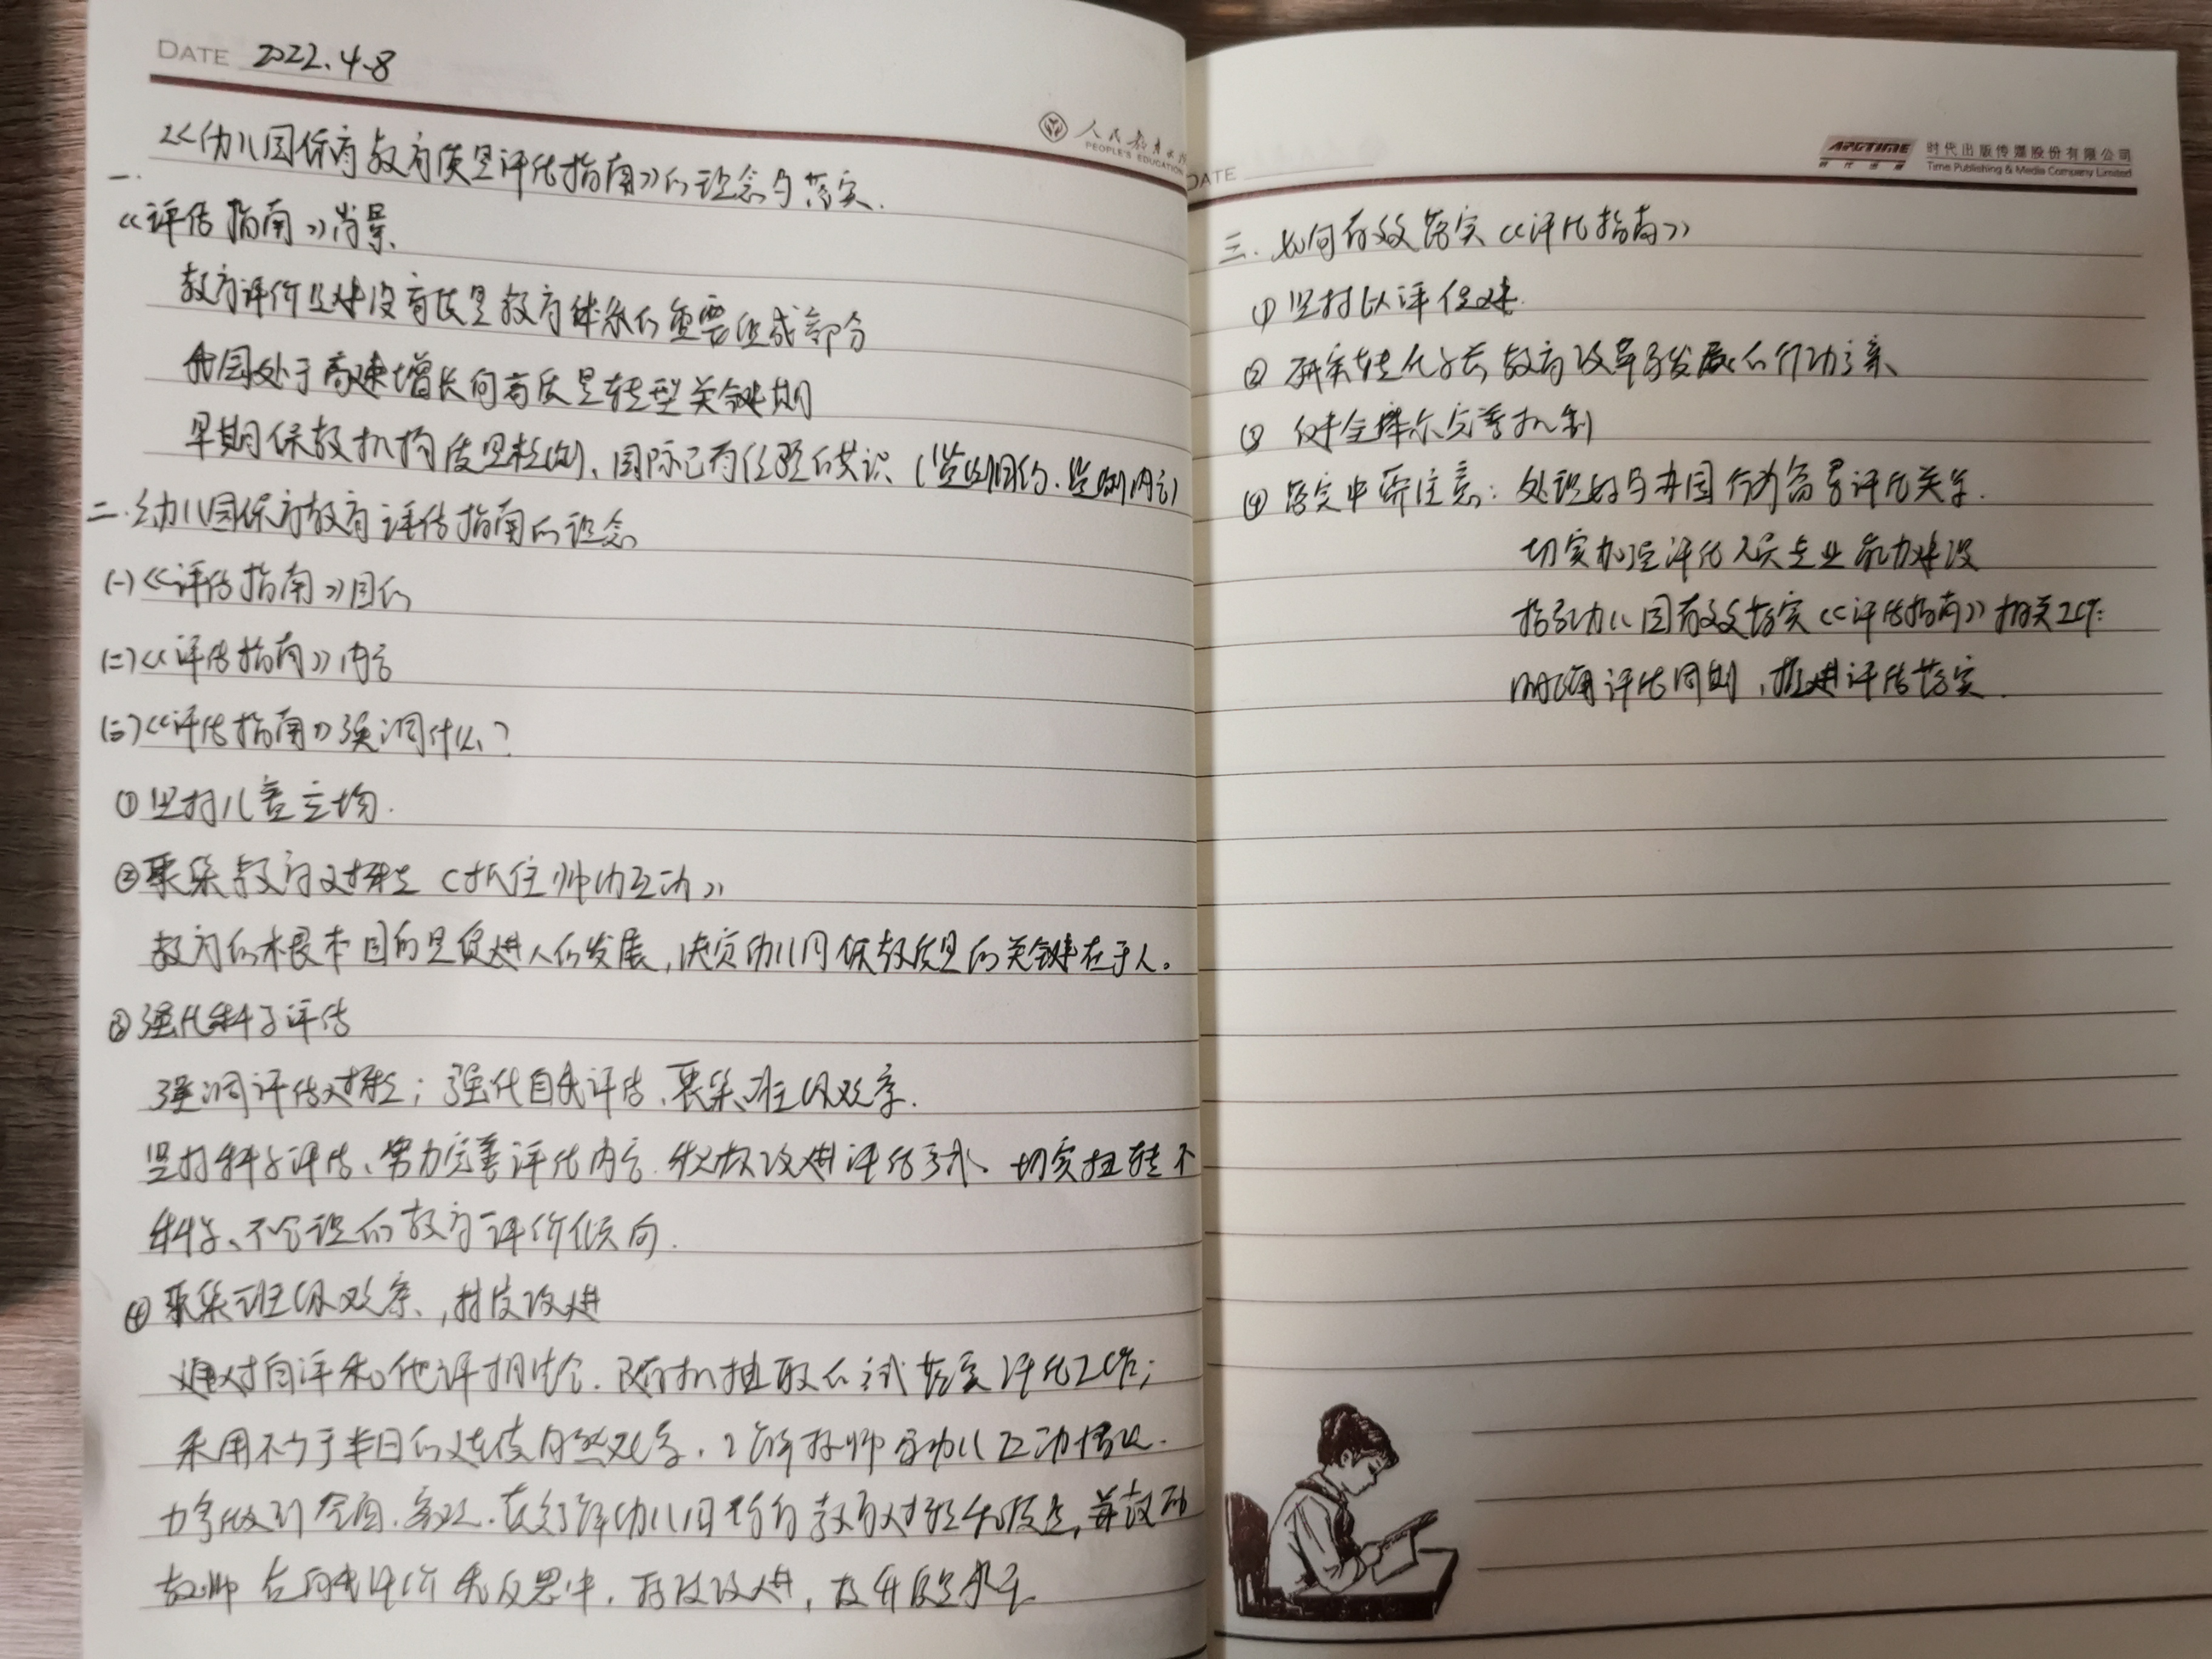 DATE 2022.4.8
人民教育出版
PEOPLE'S EDUCATION
《幼儿园保育教育质量评估指南》的理念与落实.
一.
《评估指南》背景
教育评价是建设高质量教育体系的重要组成部分
我国处于高速增长向高质量转型关键期
早期保教机构质量检测、国际已有经验的共识（监测目的、监测内容）
二.幼儿园保育教育评估指南的理念
(一)《评估指南》目的
(二)《评估指南》内容
(三)《评估指南》强调什么？
①坚持儿童立场.
②聚集教育过程（抓住师幼互动）
教育的根本目的是促进人的发展，决定幼儿园保教质量的关键在于人。
③强化科学评估
强调评估过程；强化自我评估、聚集班级观察.
坚持科学评估、努力完善评估内容.积极改进评估方式、切实扭转不
科学、不合理的教育评价倾向.
④聚集班级观察、，持续改进
通过自评和他评相结合.随机抽取的方式落实评估工作；
采用不少于半日的连续自然观察.了解教师与幼儿互动情况.
力争做到全面.客观.真实了解幼儿园的教育过程和质量，并鼓励
教师在自我评价和反思中，持续改进，提升质量水平
DATE
APGTIME 时代出版传媒股份有限公司
时代出版 Time Publishing & Media Company Limited
三.如何有效落实《评估指南》
①坚持以评促建.
②研究转化学前教育改革与发展的行动方案、
③健全择示完善机制
④落实中需注意：处理好与办园行为督导评估关系.
切实加强评估人员专业能力建设
指引幼儿园有效落实《评估指南》相关工作：
明确评估周期，推进评估落实.